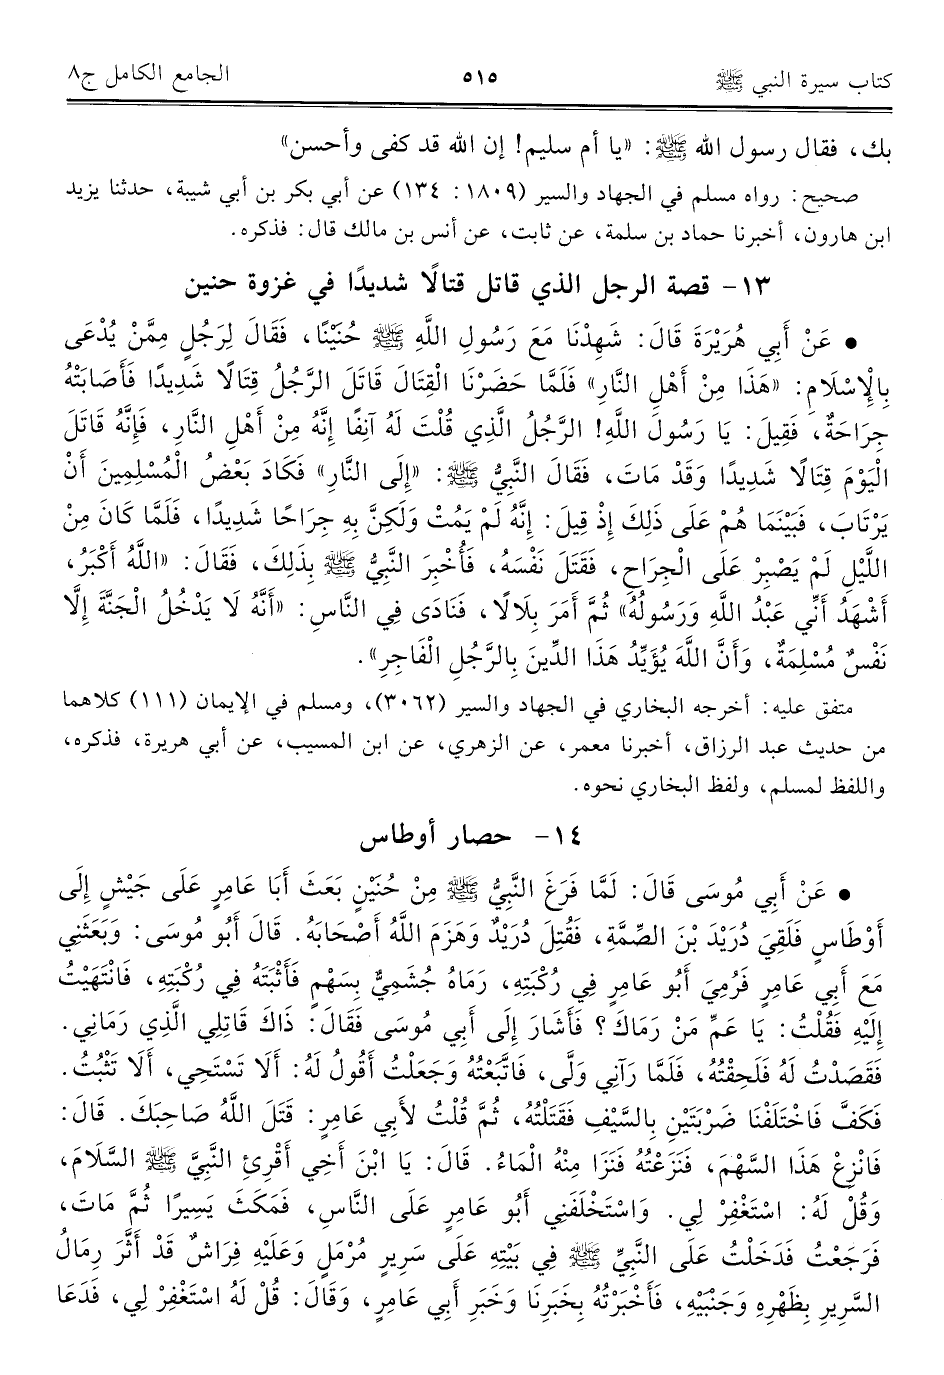 كتاب سيرة النبي ﷺ ٥١٥ الجامع الكامل ج٨
بك، فقال رسول الله ﷺ: «يا أم سليم! إن الله قد كفى وأحسن»
صحيح: رواه مسلم في الجهاد والسير (١٨٠٩: ١٣٤) عن أبي بكر بن أبي شيبة، حدثنا يزيد
ابن هارون، أخبرنا حماد بن سلمة، عن ثابت، عن أنس بن مالك قال: فذكره.
١٣- قصة الرجل الذي قاتل قتالًا شديدًا في غزوة حنين
• عَنْ أَبِي هُرَيْرَةَ قَالَ: شَهِدْنَا مَعَ رَسُولِ اللَّهِ ﷺ حُنَيْنًا، فَقَالَ لِرَجُلٍ مِمَّنْ يُدْعَى
بِالْإِسْلَامِ: «هَذَا مِنْ أَهْلِ النَّارِ» فَلَمَّا حَضَرْنَا الْقِتَالَ قَاتَلَ الرَّجُلُ قِتَالًا شَدِيدًا فَأَصَابَتْهُ
جِرَاحَةٌ، فَقِيلَ: يَا رَسُولَ اللَّهِ! الرَّجُلُ الَّذِي قُلْتَ لَهُ آنِفًا إِنَّهُ مِنْ أَهْلِ النَّارِ، فَإِنَّهُ قَاتَلَ
الْيَوْمَ قِتَالًا شَدِيدًا وَقَدْ مَاتَ، فَقَالَ النَّبِيُّ ﷺ: «إِلَى النَّارِ» فَكَادَ بَعْضُ الْمُسْلِمِينَ أَنْ
يَرْتَابَ، فَبَيْنَمَا هُمْ عَلَى ذَلِكَ إِذْ قِيلَ: إِنَّهُ لَمْ يَمُتْ وَلَكِنَّ بِهِ جِرَاحًا شَدِيدًا، فَلَمَّا كَانَ مِنْ
اللَّيْلِ لَمْ يَصْبِرْ عَلَى الْجِرَاحِ، فَقَتَلَ نَفْسَهُ، فَأُخْبِرَ النَّبِيُّ ﷺ بِذَلِكَ، فَقَالَ: «اللَّهُ أَكْبَرُ،
أَشْهَدُ أَنِّي عَبْدُ اللَّهِ وَرَسُولُهُ» ثُمَّ أَمَرَ بِلَالًا، فَنَادَى فِي النَّاسِ: «أَنَّهُ لَا يَدْخُلُ الْجَنَّةَ إِلَّا
نَفْسٌ مُسْلِمَةٌ، وَأَنَّ اللَّهَ يُؤَيِّدُ هَذَا الدِّينَ بِالرَّجُلِ الْفَاجِرِ».
متفق عليه: أخرجه البخاري في الجهاد والسير (٣٠٦٢)، ومسلم في الإيمان (١١١) كلاهما
من حديث عبد الرزاق، أخبرنا معمر، عن الزهري، عن ابن المسيب، عن أبي هريرة، فذكره،
واللفظ لمسلم، ولفظ البخاري نحوه.
١٤- حصار أوطاس
• عَنْ أَبِي مُوسَى قَالَ: لَمَّا فَرَغَ النَّبِيُّ ﷺ مِنْ حُنَيْنٍ بَعَثَ أَبَا عَامِرٍ عَلَى جَيْشٍ إِلَى
أَوْطَاسٍ فَلَقِيَ دُرَيْدَ بْنَ الصِّمَّةِ، فَقُتِلَ دُرَيْدٌ وَهَزَمَ اللَّهُ أَصْحَابَهُ. قَالَ أَبُو مُوسَى: وَبَعَثَنِي
مَعَ أَبِي عَامِرٍ فَرُمِيَ أَبُو عَامِرٍ فِي رُكْبَتِهِ، رَمَاهُ جُشَمِيٌّ بِسَهْمٍ فَأَثْبَتَهُ فِي رُكْبَتِهِ، فَانْتَهَيْتُ
إِلَيْهِ فَقُلْتُ: يَا عَمِّ مَنْ رَمَاكَ؟ فَأَشَارَ إِلَى أَبِي مُوسَى فَقَالَ: ذَاكَ قَاتِلِي الَّذِي رَمَانِي.
فَقَصَدْتُ لَهُ فَلَحِقْتُهُ، فَلَمَّا رَآنِي وَلَّى، فَاتَّبَعْتُهُ وَجَعَلْتُ أَقُولُ لَهُ: أَلَا تَسْتَحِي، أَلَا تَثْبُتُ.
فَكَفَّ فَاخْتَلَفْنَا ضَرْبَتَيْنِ بِالسَّيْفِ فَقَتَلْتُهُ، ثُمَّ قُلْتُ لأَبِي عَامِرٍ: قَتَلَ اللَّهُ صَاحِبَكَ. قَالَ:
فَانْزِعْ هَذَا السَّهْمَ، فَنَزَعْتُهُ فَنَزَا مِنْهُ الْمَاءُ. قَالَ: يَا ابْنَ أَخِي أَقْرِئِ النَّبِيَّ ﷺ السَّلَامَ،
وَقُلْ لَهُ: اسْتَغْفِرْ لِي. وَاسْتَخْلَفَنِي أَبُو عَامِرٍ عَلَى النَّاسِ، فَمَكَثَ يَسِيرًا ثُمَّ مَاتَ،
فَرَجَعْتُ فَدَخَلْتُ عَلَى النَّبِيِّ ﷺ فِي بَيْتِهِ عَلَى سَرِيرٍ مُرْمَلٍ وَعَلَيْهِ فِرَاشٌ قَدْ أَثَّرَ رِمَالُ
السَّرِيرِ بِظَهْرِهِ وَجَنْبَيْهِ، فَأَخْبَرْتُهُ بِخَبَرِنَا وَخَبَرِ أَبِي عَامِرٍ، وَقَالَ: قُلْ لَهُ اسْتَغْفِرْ لِي، فَدَعَا